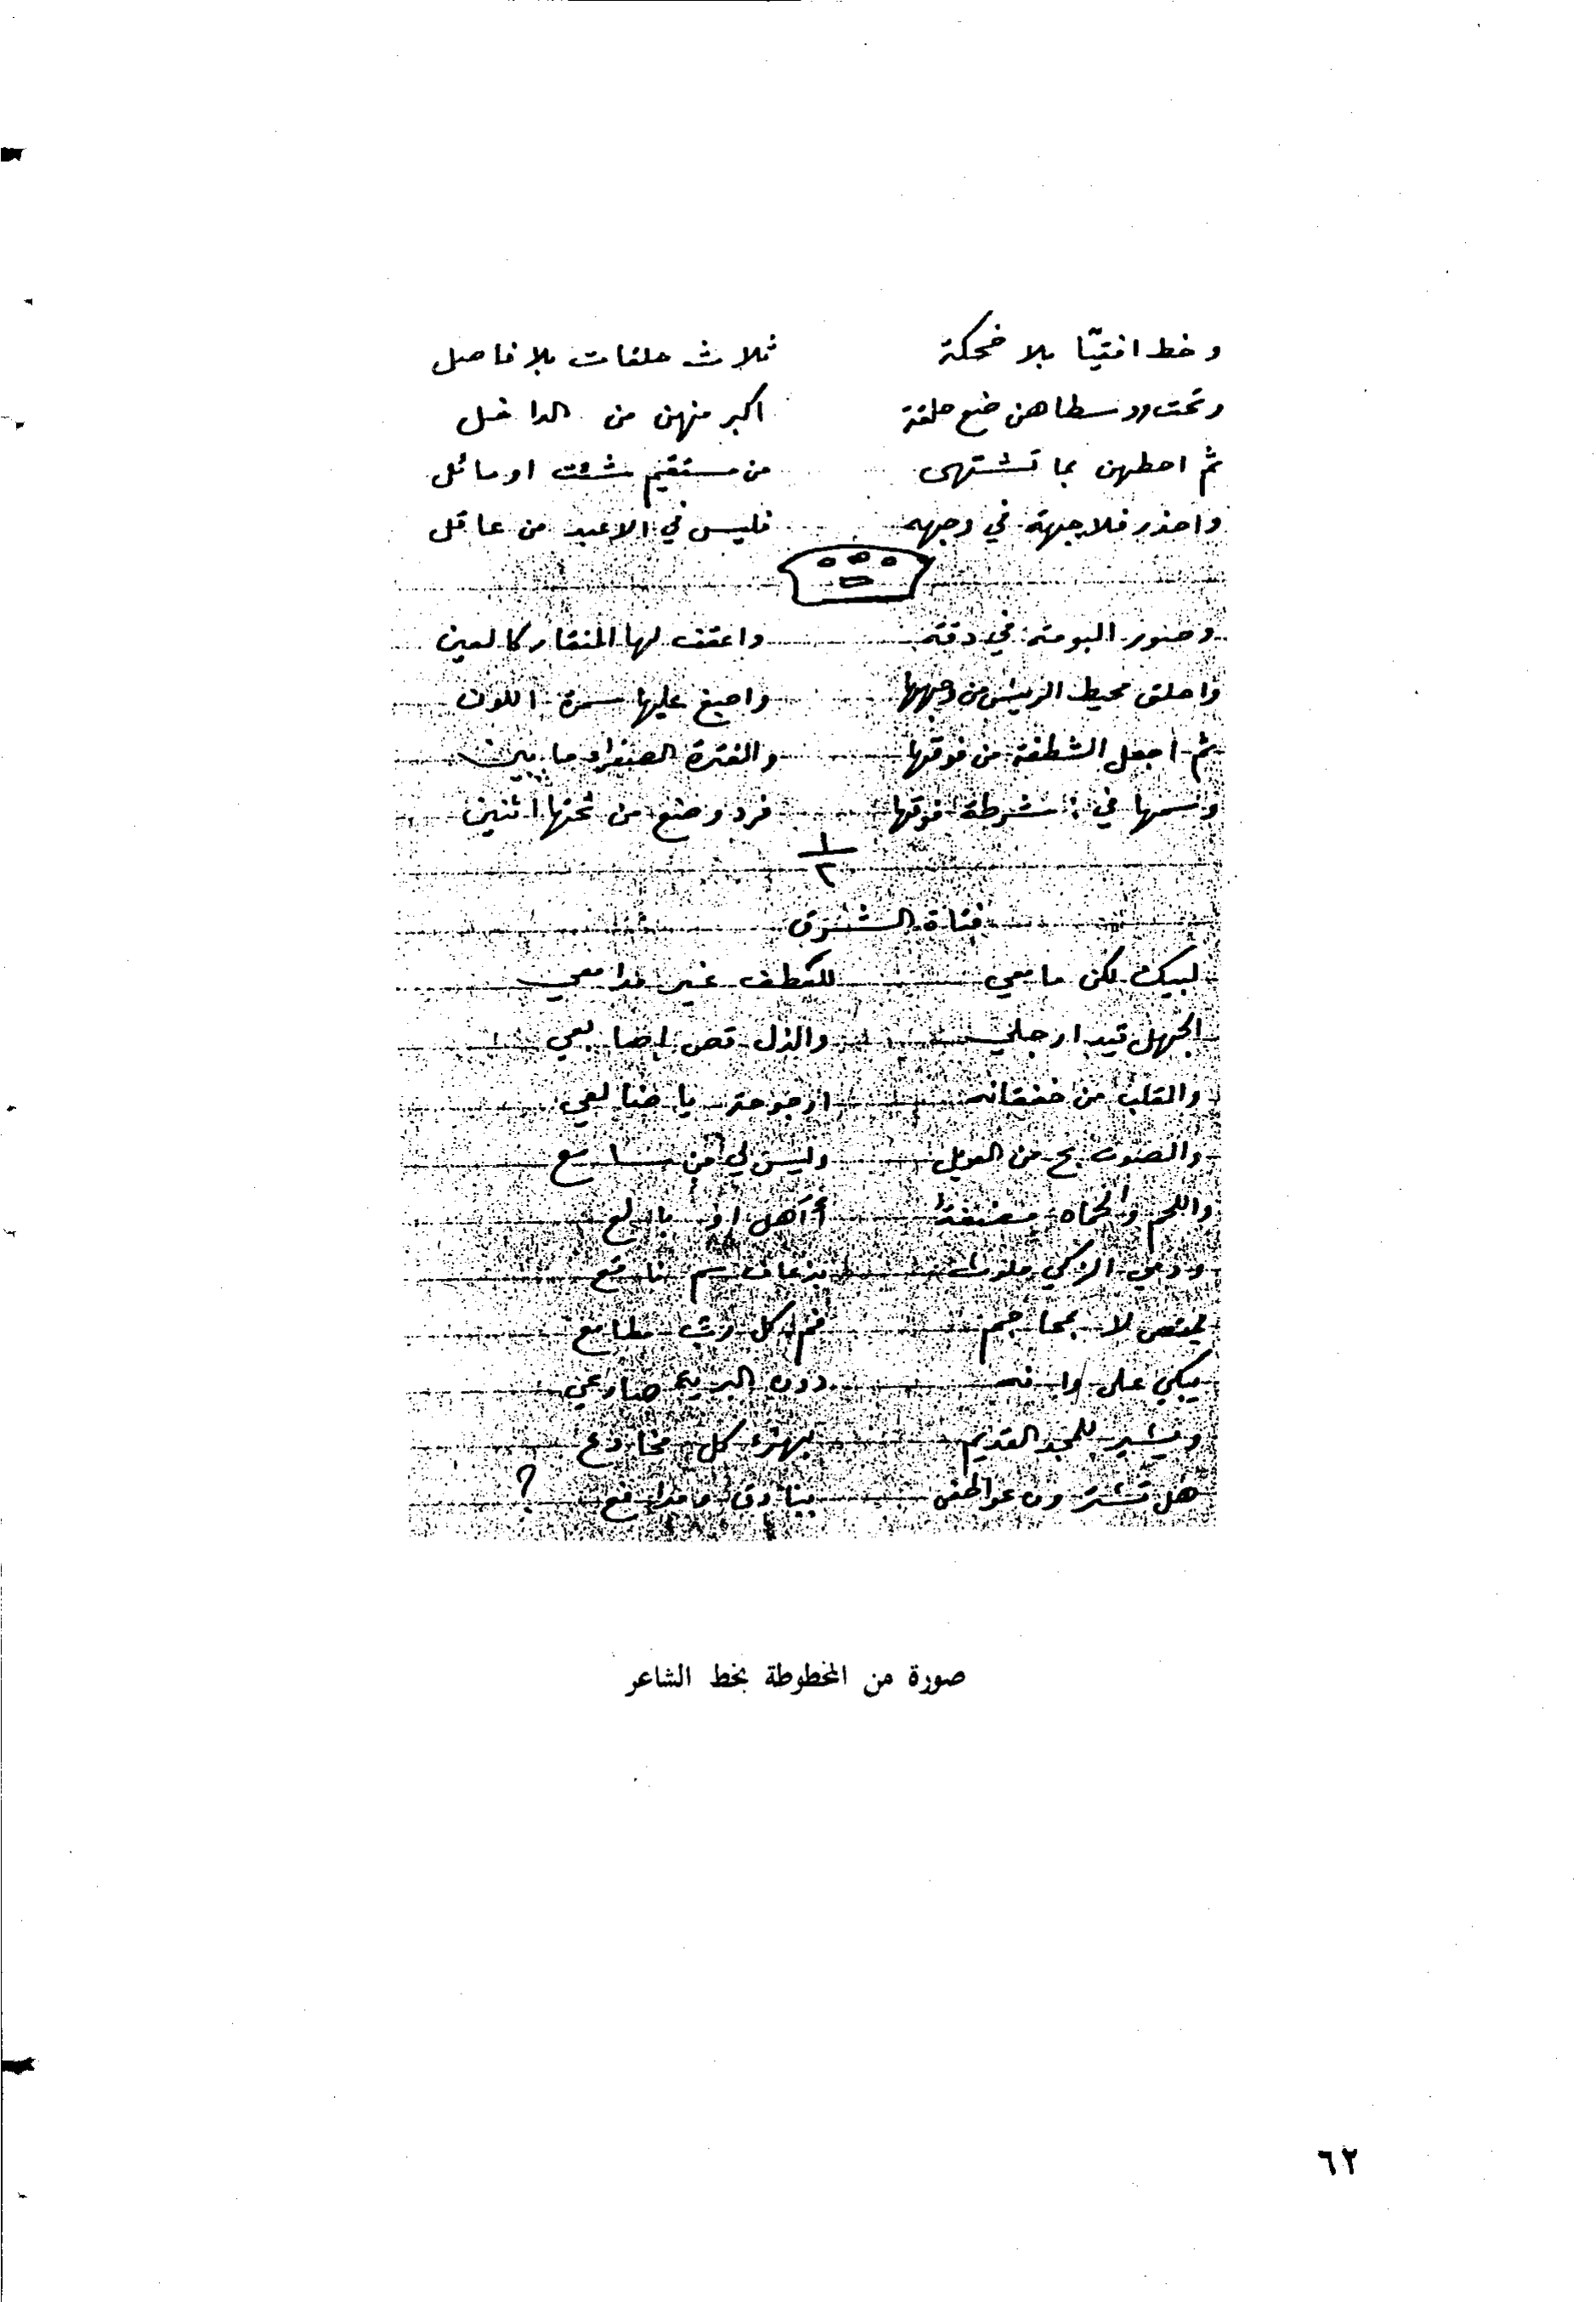 وخط افقيّا بلا ضحكة ثلاث حلقات بلا فاصل
وتحت وسطاهن ضع حلقة اكبر منهن من الداخل
ثم احطهن بما تشتهى من مستقيم شئت او مائل
واحذر فلا جبهة في وجهه فليس في الاعبد من عاقل
وصور البومة في دقة واعقف لها المنقار كالعين
واحلق محيط الريش من وجهها واصبغ عليها سمرة اللون
ثم اجعل الشطفة من فوقها والغترة الصفراء ما بين
وسمها في: شرطة فوقها فرد وضع من تحتها اثنين
١
٢
فتاة الشرق
لبيك لكن ما معي للعطف غير مدامعي
الجهل قيد ارجلي والذل قص اصابعي
والقلب من خفقانه ارجوحة يا ضالعي
والصوت بح من العويل وليس لي من سامع
واللحم والحماه مضغة أآهل او بالع
ودمي الزكي ملوث بزعاف سم ناقع
يمتص لا بمحاجم فم كل وثب طامع
يبكي علي وانه دون البرية صارعي
ويشير للمجد القديم بهزء كل مخادع
هل تشترون عواطفي ببنادق ومدافع ؟
صورة من المخطوطة بخط الشاعر
٦٢